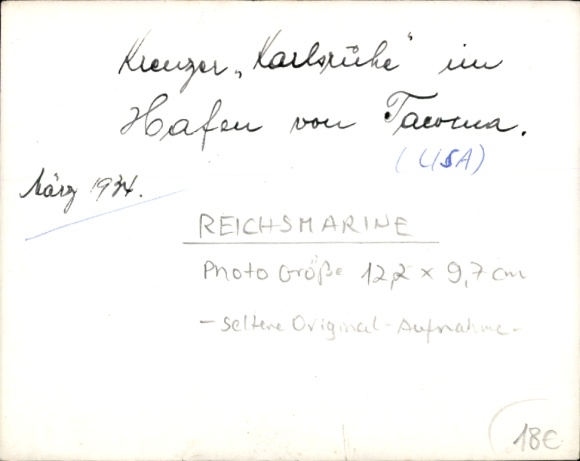 Kreuzer „Karlsruhe" im
Hafen von Tacoma.
(USA)
März 1934.
REICHSMARINE
Photo Größe 12,2 x 9,7 cm
- seltene Original-Aufnahme -
18€